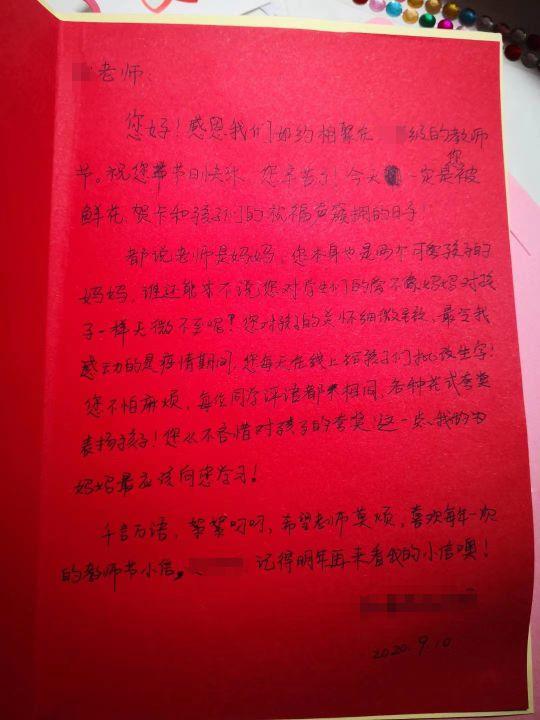 老师:
您好！感恩我们如约相聚在 级的教师
节。祝您节日快乐，您辛苦了！今天一定是您被
鲜花、贺卡和孩子们的祝福声簇拥的日子！
都说老师是妈妈，您本身也是两个可爱孩子的
妈妈，谁还能来不说您对学生们的爱不像妈妈对孩
子一样无微不至呢？您对孩子的关怀细微柔软，最令我
感动的是疫情期间，您每天在线上给孩子们批改生字！
您不怕麻烦，每位同学评语都不相同，各种花式夸奖
表扬孩子！您从不吝惜对孩子的夸奖！这一点，我作为
妈妈最应该向您学习！
千言万语，絮絮叨叨，希望老师莫烦，喜欢每年一次
的教师节小信。 记得明年再来看我的小信噢！
2020.9.10